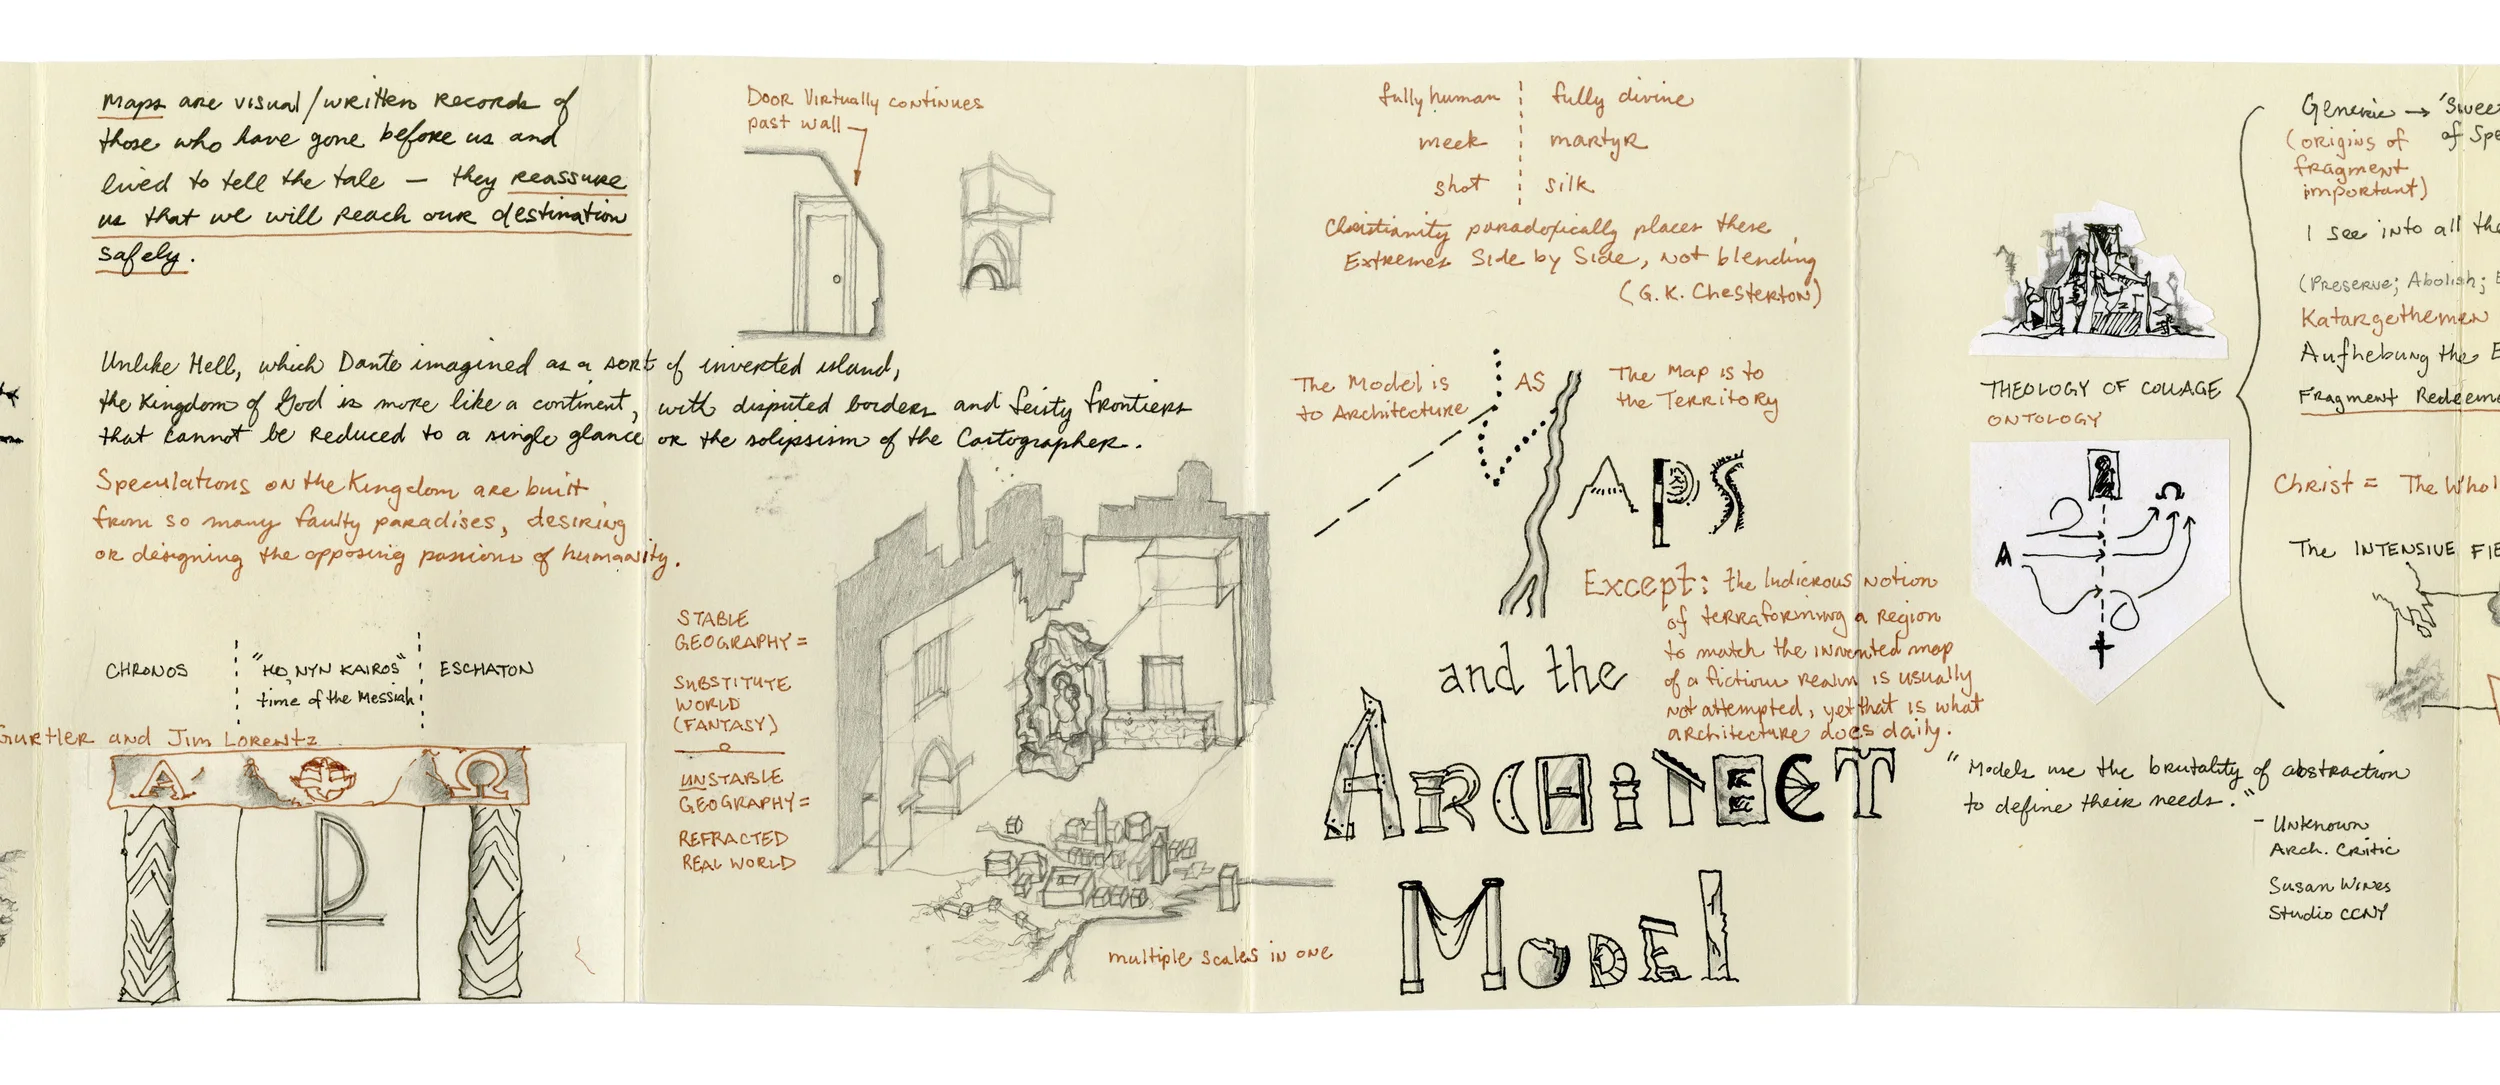 Maps are visual/written records of
those who have gone before us and
lived to tell the tale — they reassure
us that we will reach our destination
safely.
Unlike Hell, which Dante imagined as a sort of inverted island,
the Kingdom of God is more like a continent, with disputed borders and feisty frontiers
that cannot be reduced to a single glance or the solipsism of the Cartographer.
Speculations on the Kingdom are built
from so many faulty paradises, desiring
or designing the opposing passions of humanity.
CHRONOS
"HO NYN KAIROS"
time of the Messiah
ESCHATON
Gurtler and Jim Lorentz
A
Ω
Door Virtually continues
past wall
STABLE
GEOGRAPHY =
SUBSTITUTE
WORLD
(FANTASY)
UNSTABLE
GEOGRAPHY =
REFRACTED
REAL WORLD
multiple scales in one
fully human fully divine
meek martyr
shot silk
Christianity paradoxically places these
Extremes Side by Side, not blending
(G. K. Chesterton)
The Model is
to Architecture
AS
The Map is to
the Territory
MAPS
Except: the ludicrous notion
of terraforming a region
to match the invented map
of a fiction realm is usually
not attempted, yet that is what
architecture does daily.
and the
ARCHITECT
MODEL
THEOLOGY OF COLLAGE
ONTOLOGY
A
Ω
Generic → 'Swee
(origins of of Spe
fragment
important)
I see into all the
(Preserve; Abolish; E
Katargethemen
Aufhebung the E
Fragment Redeeme
Christ = The Whol
The INTENSIVE FIE
"Models use the brutality of abstraction
to define their needs."
- Unknown
Arch. Critic
Susan Wines
Studio CCNY